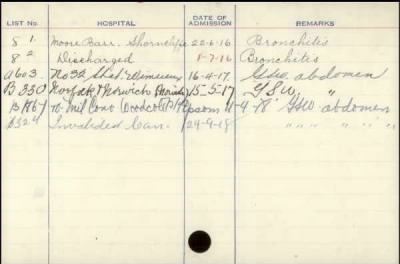 LIST NO. HOSPITAL DATE OF ADMISSION REMARKS
8 1. Moore Barr. Shorncliffe 22-6-16 Bronchitis
8 2 Discharged 1-7-16 Bronchitis
A603. No 32 Stat. Wimereux 16-4-17. GSW. abdomen
B 330 Norfolk Norwich 15-5-17 GSW. "
Mil Conv Woodcote Pk Epsom 11-4-18 GSW abdomen
Invalided Can. 24-9-18 " " " " "